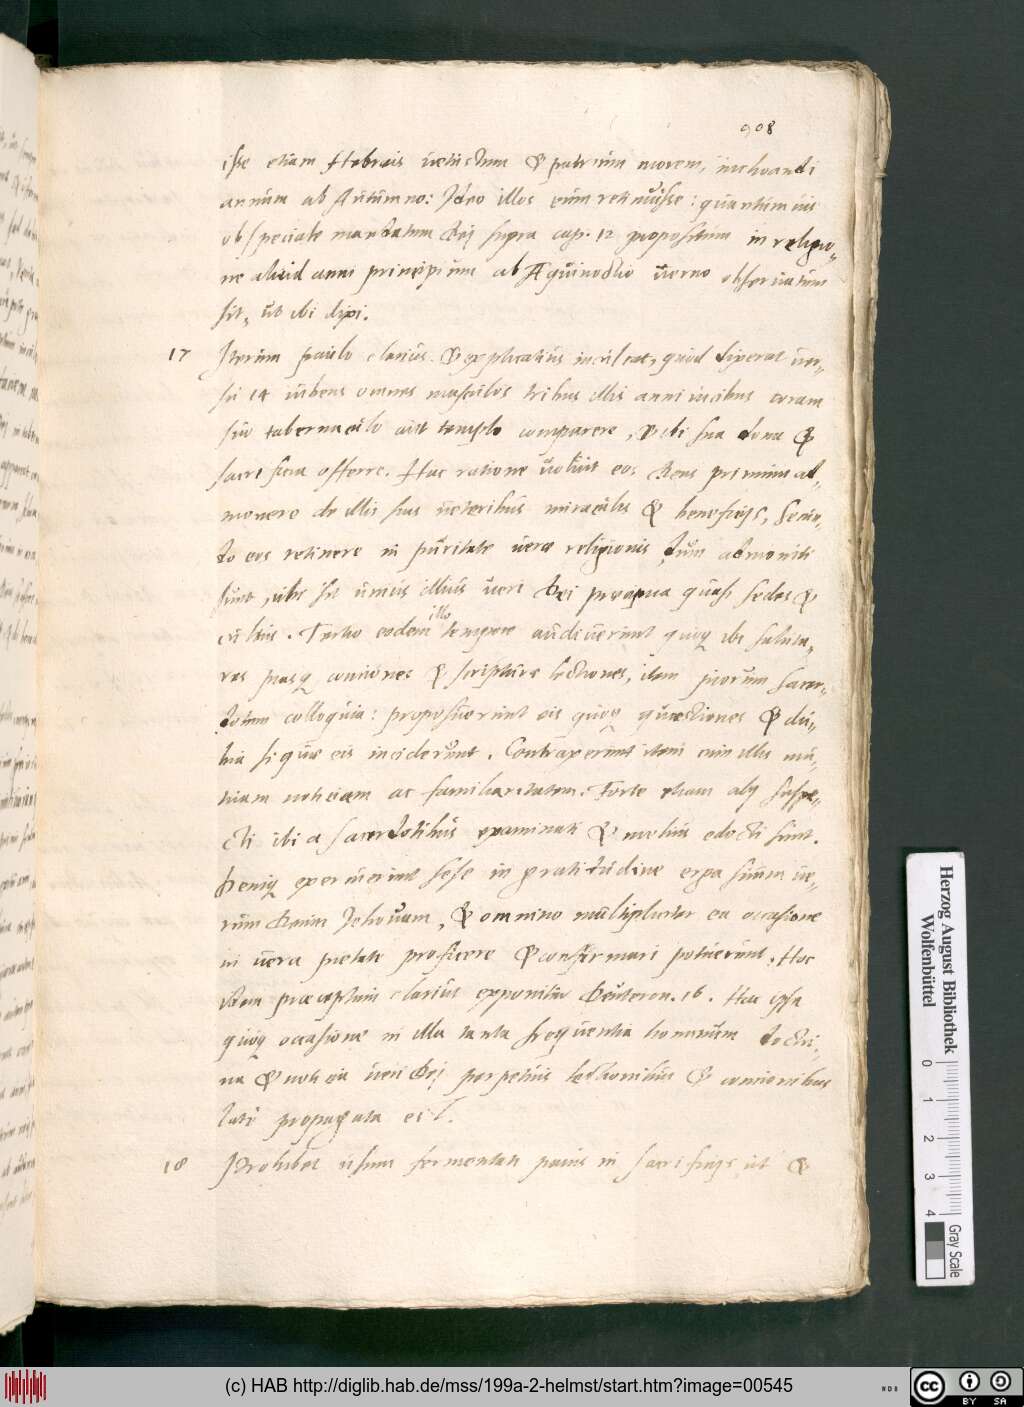 908
isse etiam Hebreis uetustum & patrium morem, inchoandi
annum ab Autumno: Ideo illos eum retinuisse: quantumuis
ob speciale mandatum Dej supra cap. 12 propositum in religio„
ne aliud anni principium ab AEquinoctio uerno obseruatum
sit, ut ibi dixi.
17 Iterum paulo clarius & explicatius inculcat, quod dixerat uer„
su 14 iubens omnes masculos tribus illis anni uicibus coram
suo tabernaculo aut templo comparere, & ibi sua dona &
sacrificia offerre. Hac ratione uoluit eos Deus primum ad„
monere de illis suis ueteribus miraculis & beneficijs, secun„
do eos retinere in puritate uerae religionis, dum admoniti
sunt, ubi sit unius illius ueri Dej praecipua quasi sedes &
cultus. Tertio eodem illo tempore audiuerunt quoq ibi saluta„
res piasq conciones & scripturae lectiones, item piorum sacer„
dotum colloquia: proposuerunt eis quoq quaestiones & du„
bia si quae eis inciderunt. Contraxerunt etiam cum illis mu„
tuam noticiam ac familiaritatem: Forte etiam alij suspe„
cti ibi a sacerdotibus examinati & melius edocti sunt.
Deniq exercuerunt sese in gratitudine erga suum ue„
rum Deum Jehouam, & omnino multipliciter ea occasione
in uera pietate proficere & confirmari potuerunt. Hoc
idem praeceptum clarius exponitur Deuteron. 16. Hac ipsa
quoq occasione in illa tanta frequentia hominum doctri„
na & noticia ueri Dej perpetuis lectionibus & concionibus
late propagata est.
18 Prohibet usum fermentati panis in sacrificijs, ut &
Herzog August Bibliothek
Wolfenbüttel
0 1 2 3 4
Gray Scale
(c) HAB http://diglib.hab.de/mss/199a-2-helmst/start.htm?image=00545
cc BY SA